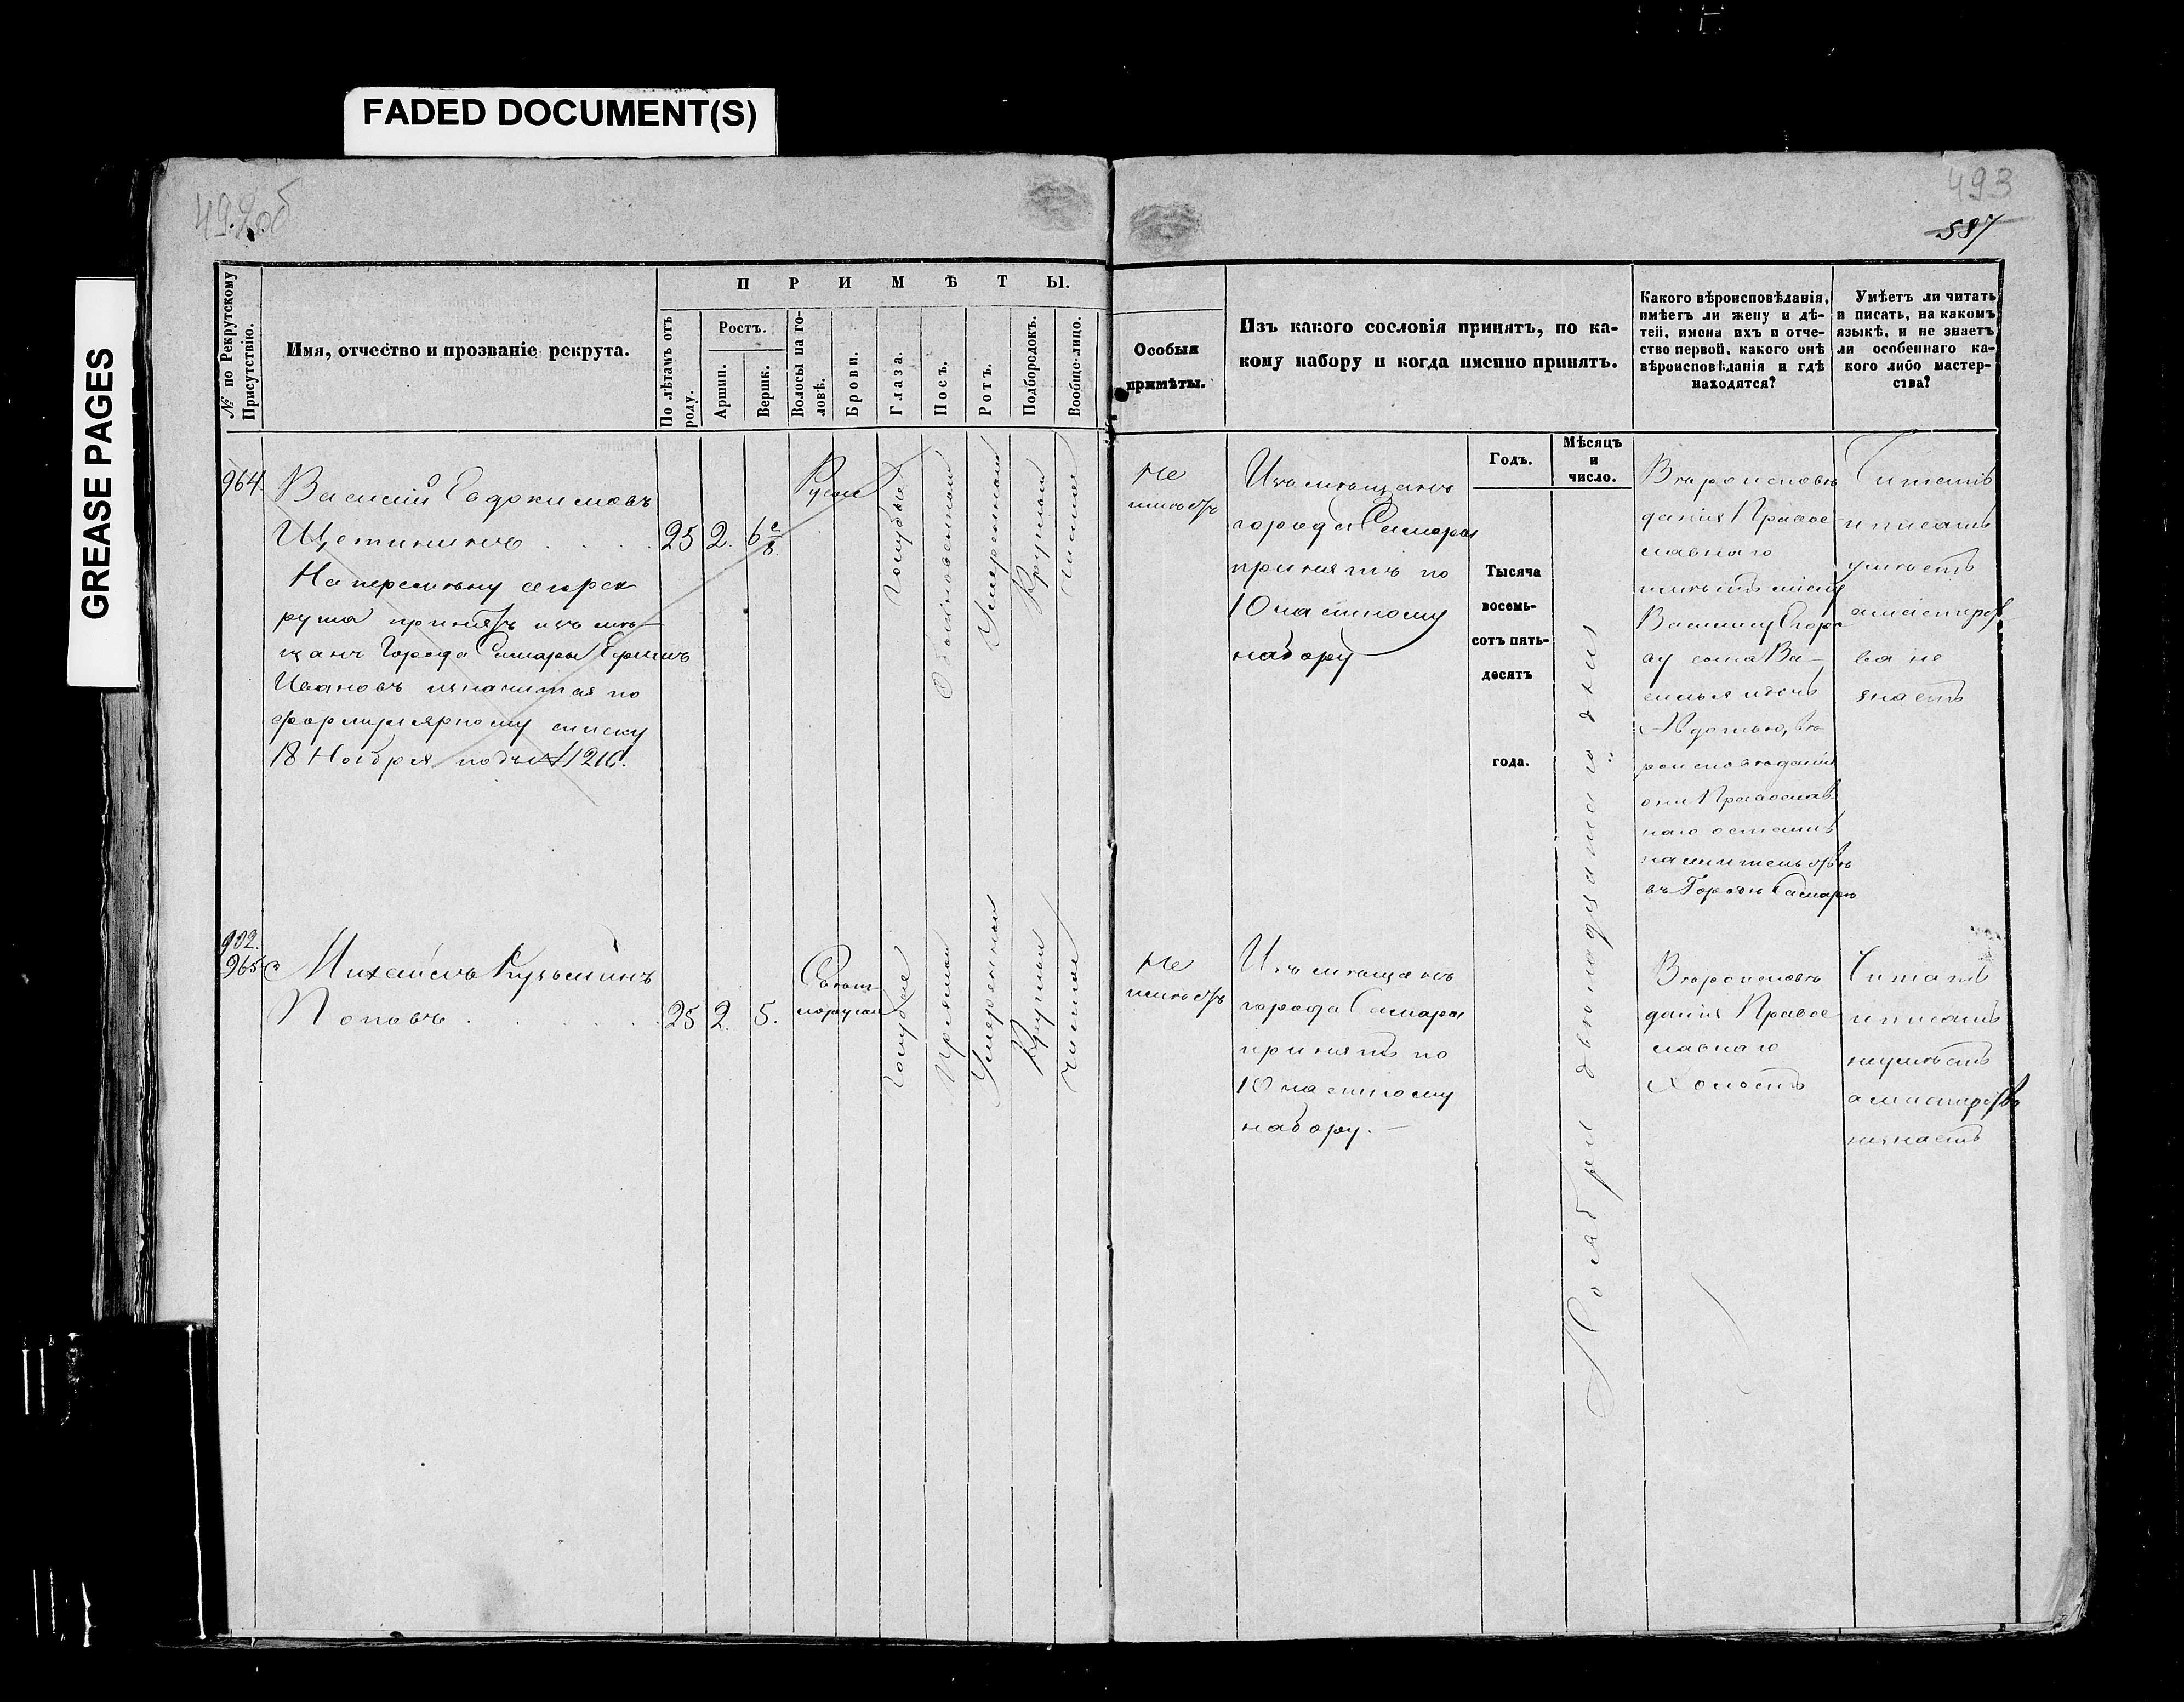 FADED DOCUMENT(S)
GREASE PAGES
492об
493
587
№ по Рекрутскому Присутствію.
Имя, отчество и прозваніе рекрута.
ПРИМѢТЫ.
По лѣтамъ отъ роду.
Ростъ.
Аршин.
Вершк.
Волосы на головѣ.
Брови.
Глаза.
Носъ.
Ротъ.
Подбородокъ.
Вообще лицо.
Особыя
примѣты.
Изъ какого сословія принятъ, по ка-
кому набору и когда именно принятъ.
Годъ.
Мѣсяцъ
и
число.
Какого вѣроисповѣданія,
имѣетъ ли жену и дѣ-
тей, имена ихъ и отче-
ство первой, какого онѣ
вѣроисповѣданія и гдѣ
находятся?
Умѣетъ ли читать
и писать, на какомъ
языкѣ, и не знаетъ
ли особеннаго ка-
кого либо мастер-
ства?
964.
Василій Евдокимовъ
Щетининъ
25
2.
6 2/8
На перемѣну сего рек
рута принятъ изъ мѣ-
щанъ Города Самары Ефимъ
Ивановъ и значится по
формулярному списку
18 Ноября подъ № 1210.
Русые
Голубые
Обыкновенной
Умеренной
Круглой
Чистое
Не
имѣетъ
Изъ мѣщанъ
города Самары
принятъ по
10 частному
набору
Тысяча
восемь-
сотъ пять-
десятъ
года.
Ноября двенадцатаго дня
Вѣроисповѣ
данія Право
славнаго
имѣетъ жену
Василису Егоро
ву сына Ва-
силья и дочь
Авдотью, вѣ
роисповѣданія
они Православ
наго
въ Городѣ Самарѣ
Читать
и писать
умѣетъ
а мастерст
ва не
знаетъ
932.
965
Михайла Кузьминъ
Поповъ
25
2.
5.
Светло
русые
Голубые
Прямой
Умеренной
Круглой
Чистое
Не
имѣетъ
Изъ мѣщанъ
города Самары
принятъ по
10 частному
набору.
Вѣроисповѣ
данія Право
славнаго
Холостъ
Читать
и писать
неумѣетъ
а мастерства
незнаетъ